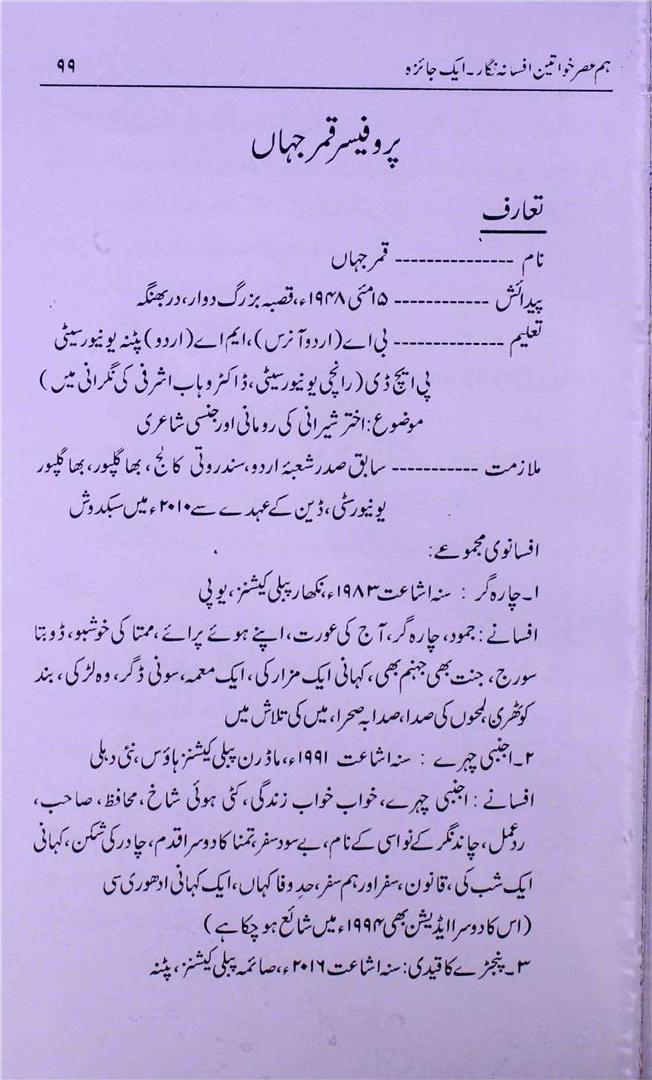 ہم عصر خواتین افسانہ نگار۔ ایک جائزہ ۹۹
پروفیسر قمر جہاں
تعارف
نام -------------- قمر جہاں
پیدائش ------------ ۱۵ مئی ۱۹۴۸ء، قصبہ بزرگ دوار، دربھنگہ
تعلیم -------------- بی اے (اردو آنرس)، ایم اے (اردو) پٹنہ یونیورسیٹی
پی ایچ ڈی (رانچی یونیورسیٹی، ڈاکٹر وہاب اشرفی کی نگرانی میں)
موضوع: اختر شیرانی کی رومانی اور جنسی شاعری
ملازمت ----------- سابق صدر شعبۂ اردو، سندروتی کالج، بھاگلپور، بھاگلپور
یونیورسٹی، ڈین کے عہدے سے ۲۰۱۰ء میں سبکدوش
افسانوی مجموعے:
۱۔ چارہ گر : سنہ اشاعت ۱۹۸۳ء، نکھار پبلی کیشنز، یوپی
افسانے: جمود، چارہ گر، آج کی عورت، اپنے ہوئے پرائے، ممتا کی خوشبو، ڈوبتا
سورج، جنت بھی جہنم بھی، کہانی ایک مزار کی، ایک معمہ، سونی ڈگر، وہ لڑکی، بند
کوٹھری، لمحوں کی صدا، صدا بہ صحرا، میں کی تلاش میں
۲۔ اجنبی چہرے : سنہ اشاعت ۱۹۹۱ء، ماڈرن پبلی کیشنز ہاؤس، نئی دہلی
افسانے: اجنبی چہرے، خواب خواب زندگی، کٹی ہوئی شاخ، محافظ، صاحب،
ردعمل، چاند نگر کے نواسی کے نام، بے سود سفر، تمنا کا دوسرا قدم، چادر کی شکن، کہانی
ایک شب کی، قانون، سفر اور ہم سفر، حدِ وفا کہاں، ایک کہانی ادھوری سی
(اس کا دوسرا ایڈیشن بھی ۱۹۹۴ء میں شائع ہو چکا ہے)
۳۔ پنجڑے کا قیدی: سنہ اشاعت ۲۰۱۶ء، صائمہ پبلی کیشنز، پٹنہ